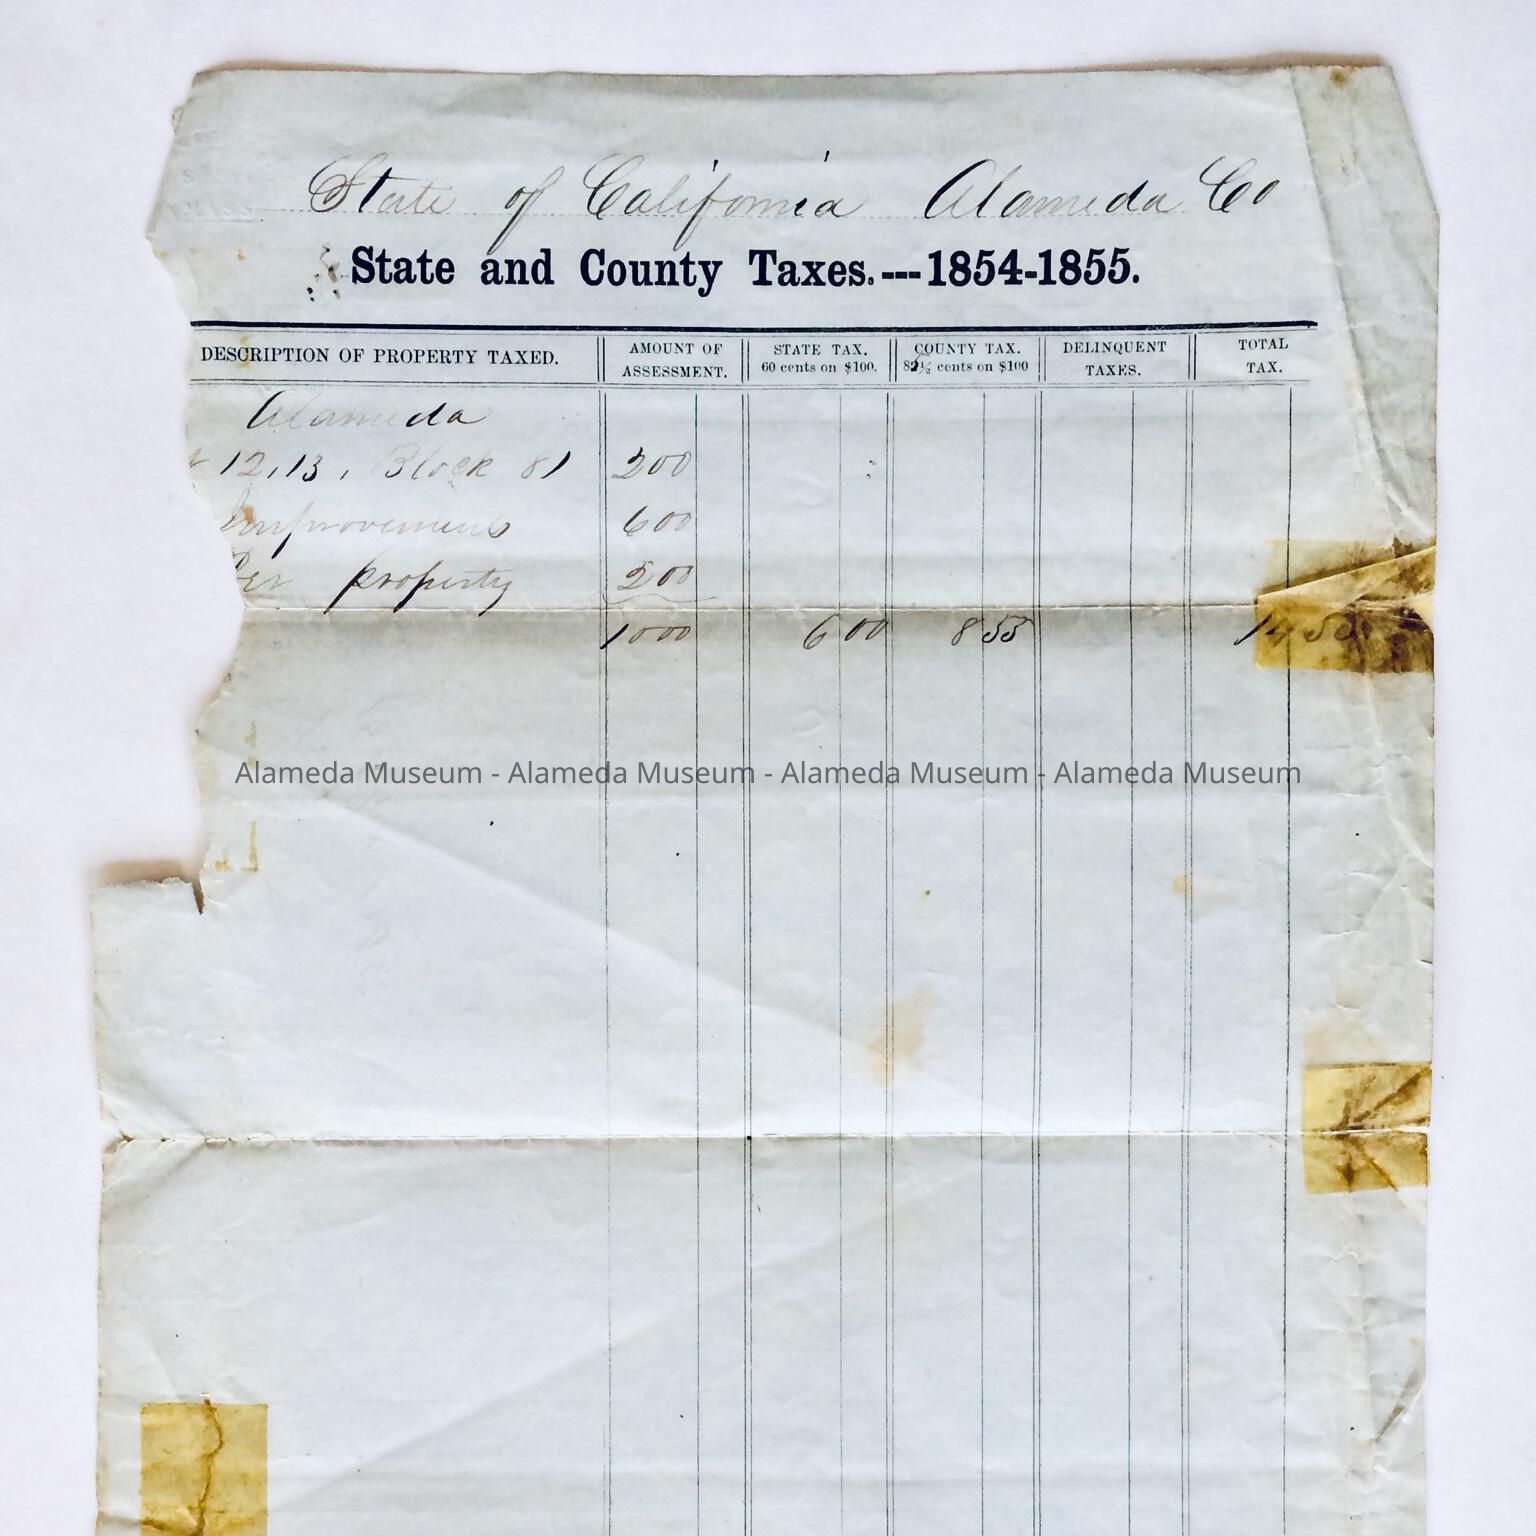 State of California Alameda Co
State and County Taxes.---1854-1855.
DESCRIPTION OF PROPERTY TAXED. AMOUNT OF ASSESSMENT. STATE TAX. 60 cents on $100. COUNTY TAX. cents on $100 DELINQUENT TAXES. TOTAL TAX.
Alameda
12,13, Block 81 200
Improvements 600
Per property 200
1000 6 00 8 53 14 50
Alameda Museum - Alameda Museum - Alameda Museum - Alameda Museum